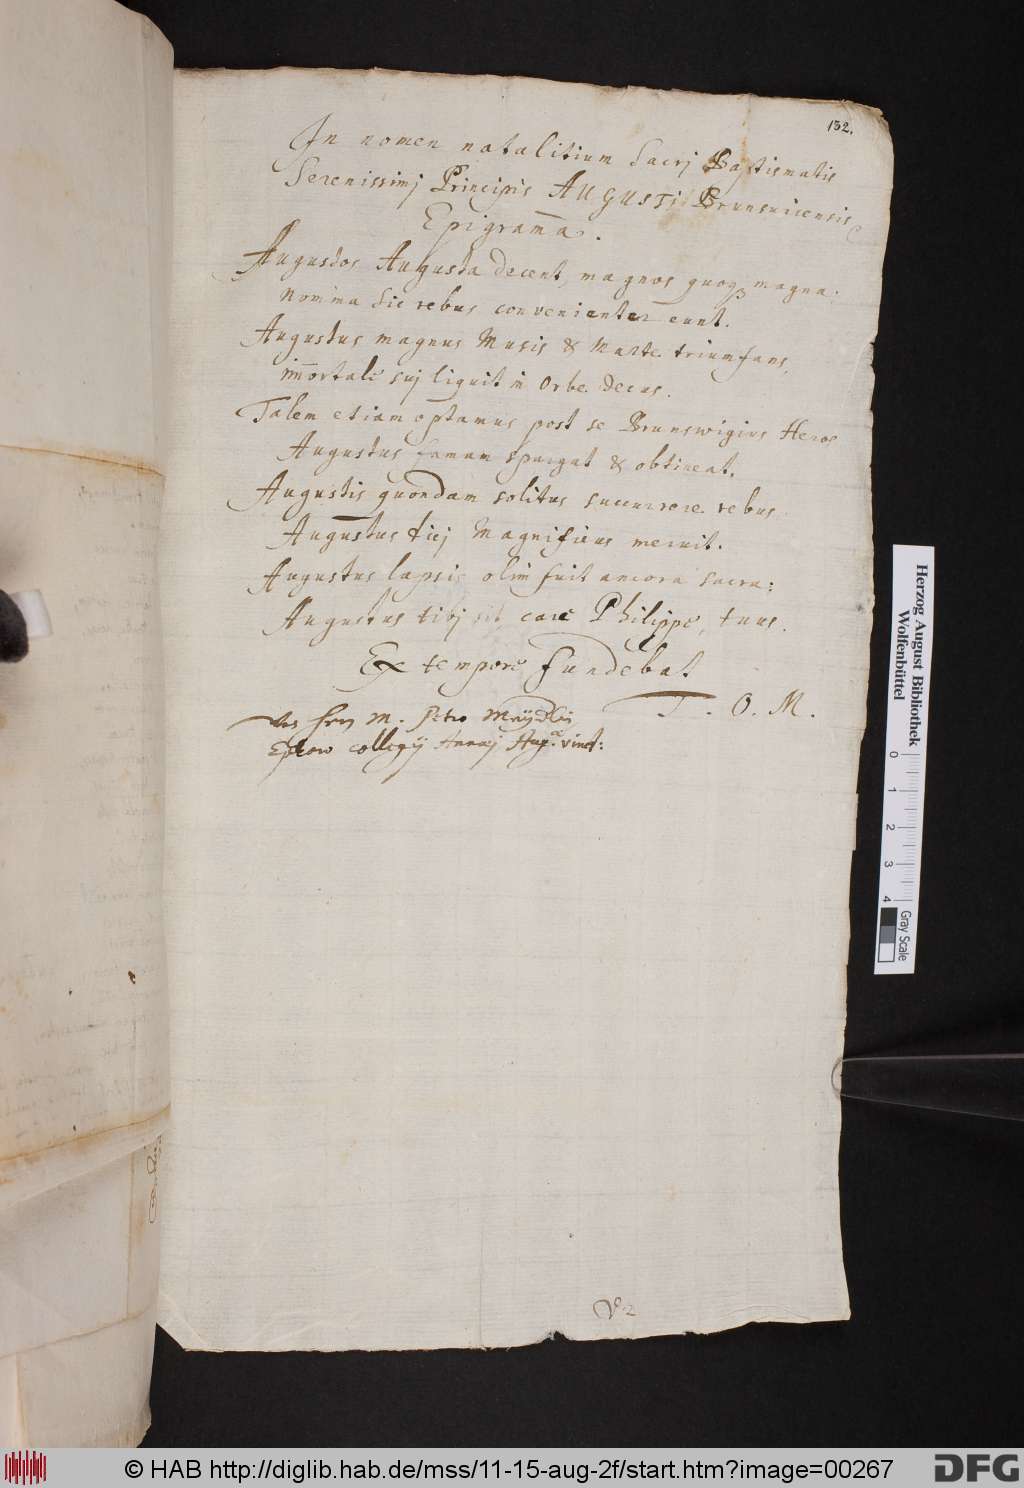 132.
In nomen natalitium Sacrj Baptismatis
Serenissimj Principis AUGUSTI Brunsuicensis
Epigram̄a.
Augustos Augusta decent, magnos quoq₃ magna:
Nomina sic rebus convenienter eunt.
Augustus magnus Musis & Marte triumfans,
im̄ortale suj liquit in Orbe decus.
Talem etiam optamus post se Brunswigius Heros
Augustus famam spargat & obtineat.
Augustis quondam solitus succurrere rebus
Augustus dicj Magnificus meruit.
Augustus lapsis olim fuit ancora sacra:
Augustus tibj sit, care Philippe, tuus.
Ex tempore fundebat
T. O. M.
M. Petro
collegij Annæj Aug. vind:
Herzog August Bibliothek
Wolfenbüttel
0 1 2 3 4
Gray Scale
© HAB http://diglib.hab.de/mss/11-15-aug-2f/start.htm?image=00267
DFG